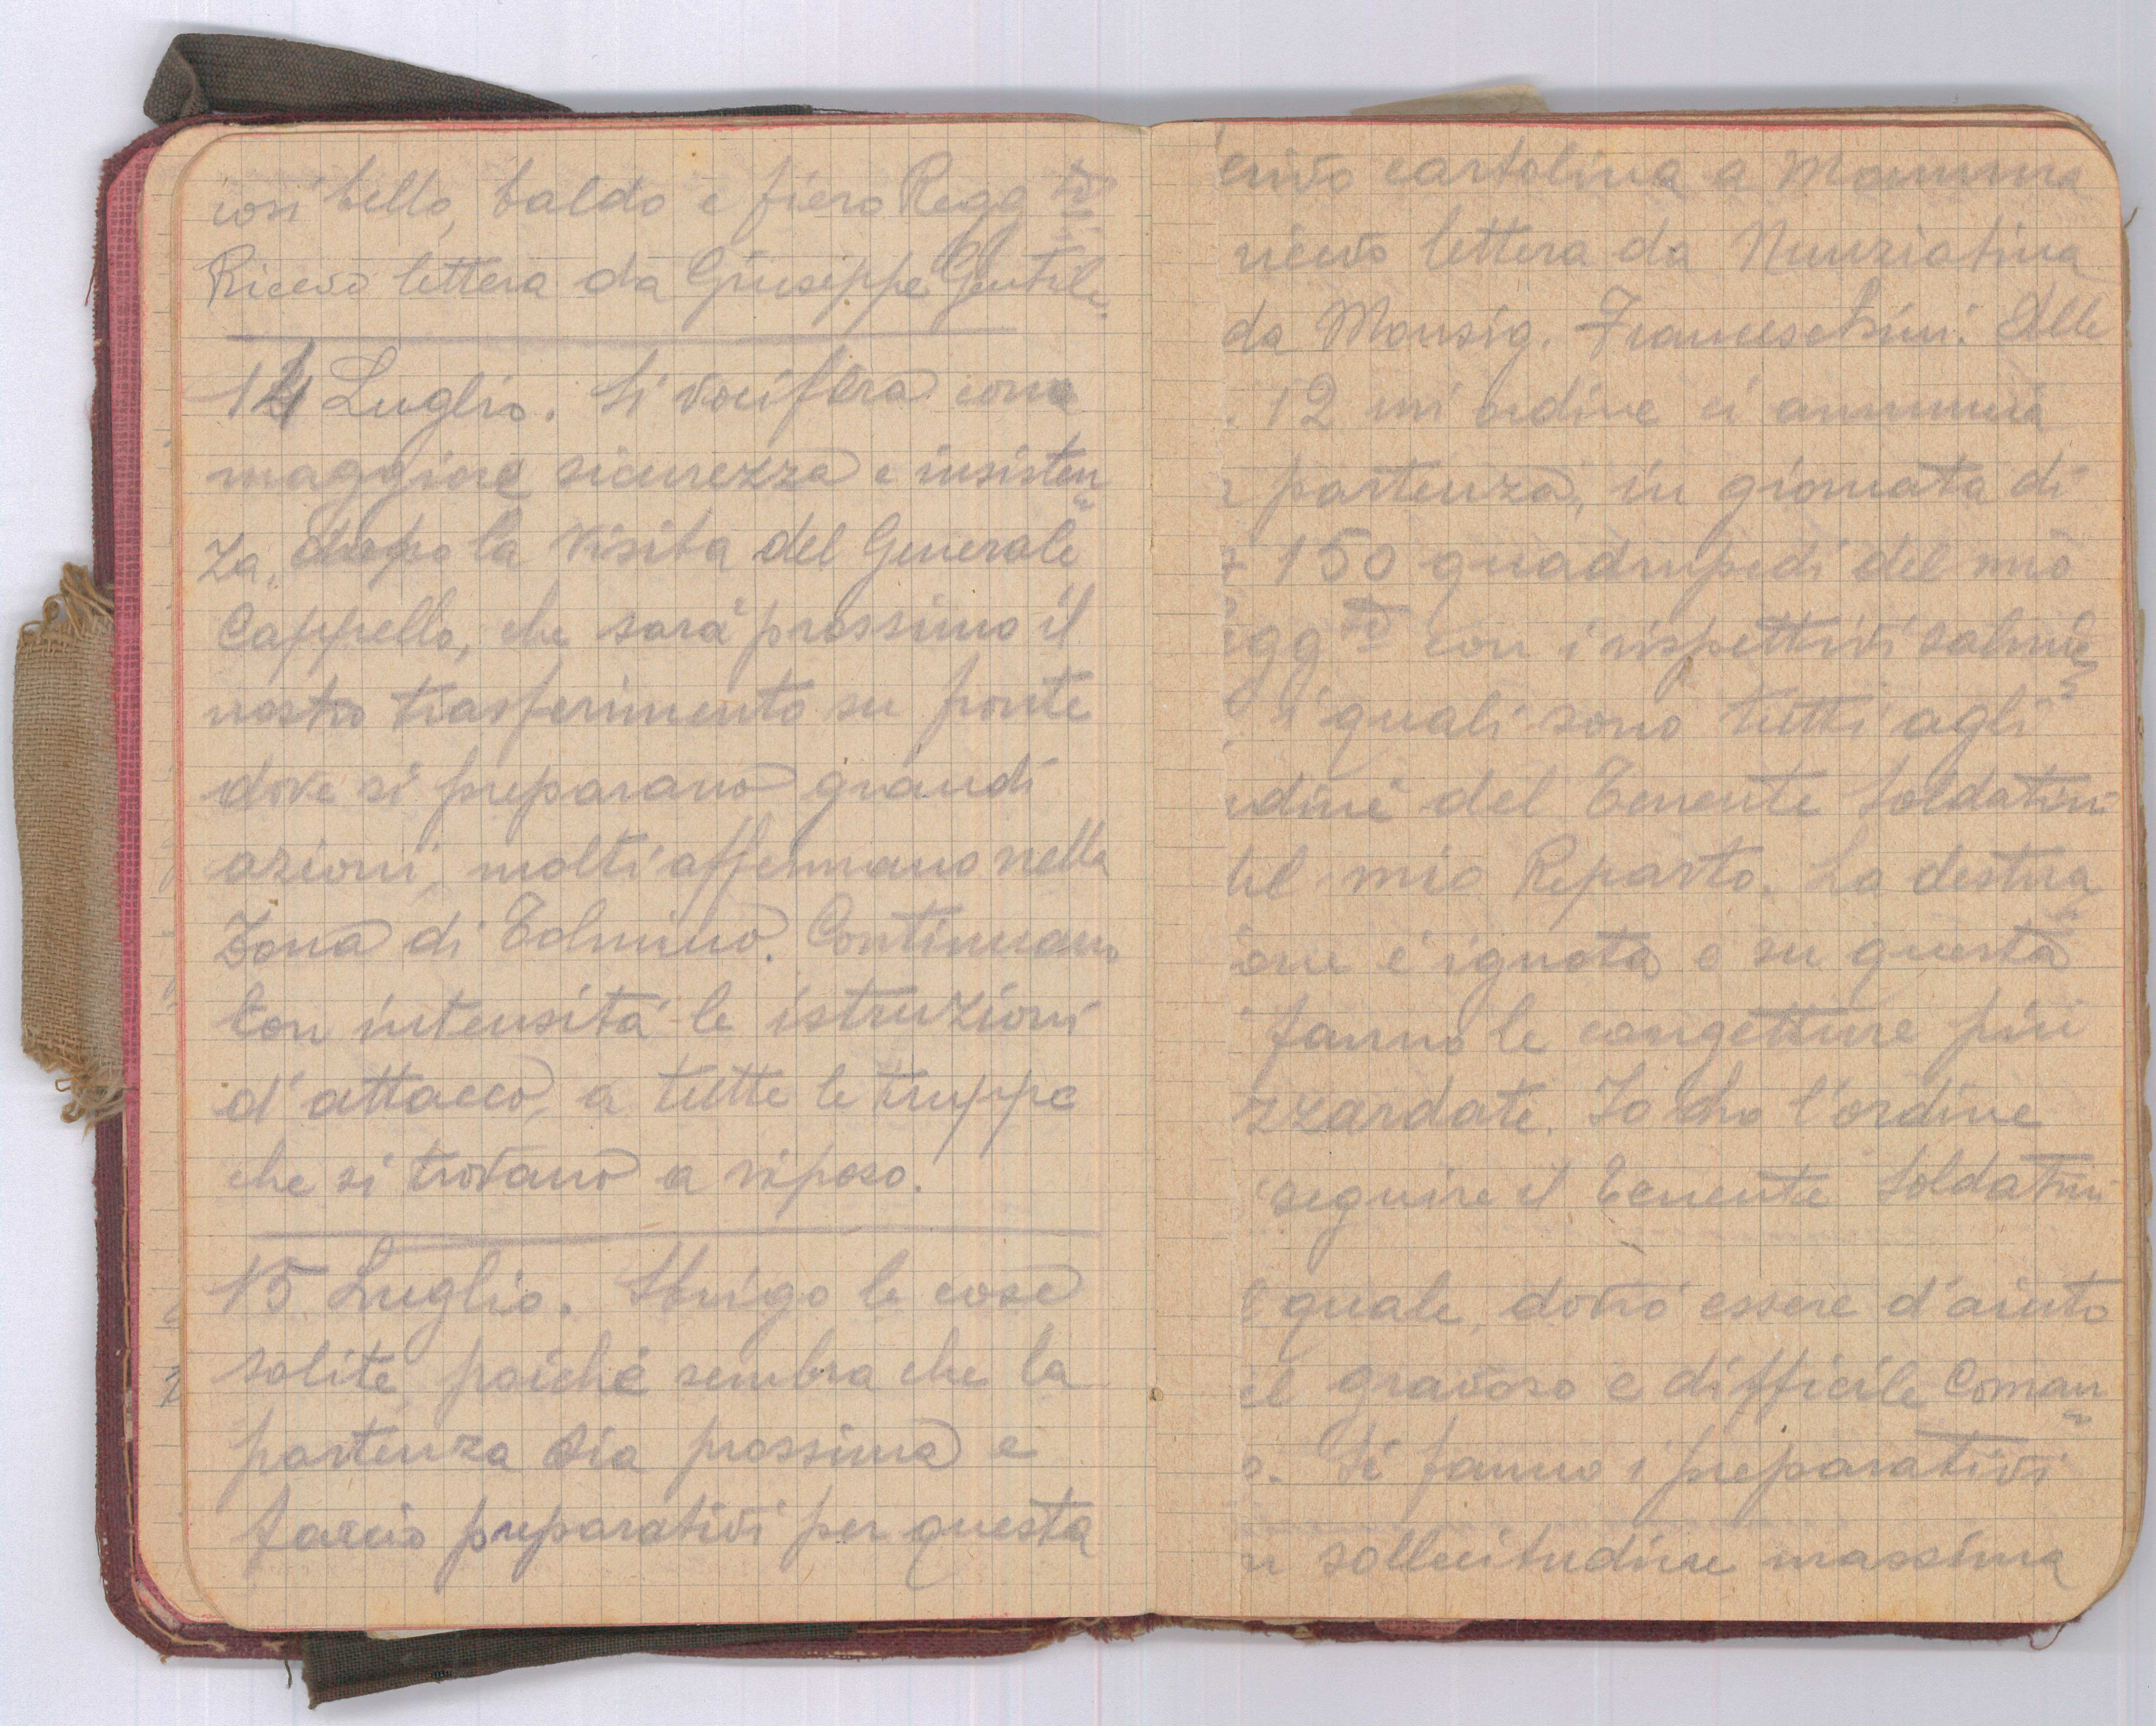 così bello, baldo e fiero Regg.to
Ricevo lettera da Giuseppe Gentile.
14 Luglio. Si vocifera con
maggiore sicurezza e insisten
za, dopo la visita del Generale
Cappello, che sarà prossimo il
nostro trasferimento su fronte
dove si preparano grandi
azioni, molti affermano nella
Zona di Tolmino. Continuano
con intensità le istruzioni
d'attacco, a tutte le truppe
che si trovano a riposo.
15 Luglio. Sbrigo le cose
solite, poiché sembra che la
partenza sia prossima e
faccio preparativi per questa
crivo cartolina a Mamma
ricevo lettera da Nunziatina
da Monsig. Franceschini. Alle
12 un ordine ci annuncia
partenza, in giornata di
150 quadrupedi del mio
egg.to con i rispettivi salmie
i quali sono tutti agli
rdini del Tenente Soldatini
del mio Reparto. La destina
one è ignota e su questa
fanno le congetture più
zzardate. Io ho l'ordine
seguire il Tenente Soldatini
l quale, dovrò essere d'aiuto
el gravoso e difficile coman
o. Si fanno i preparativi
n sollecitudine massima